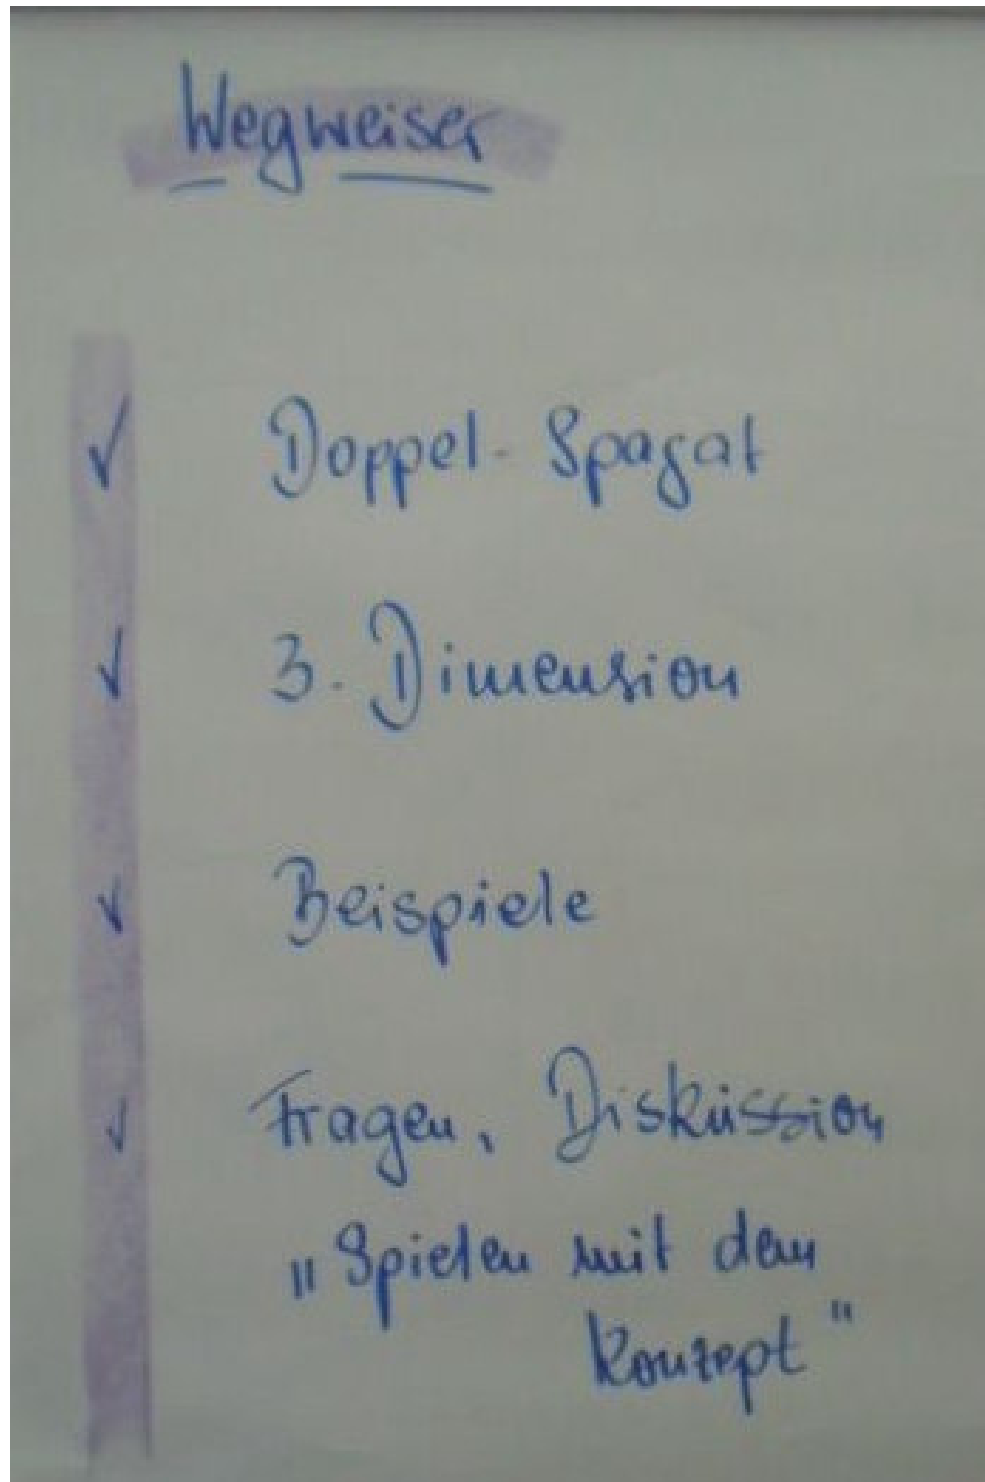 Wegweiser
✓ Doppel-Spagat
✓ 3. Dimension
✓ Beispiele
✓ Fragen, Diskussion
"Spielen mit dem
Konzept"